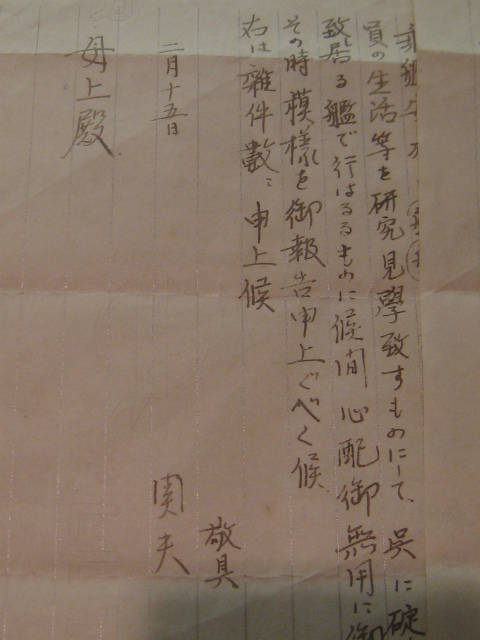 員の生活等を研究見學致すものにして、呉に碇
致居る艦で行はるるものに候間心配御無用に御
その時模様を御報告申上ぐべく候
右は雜件數々申上候
敬具
二月十五日
夫
母上殿